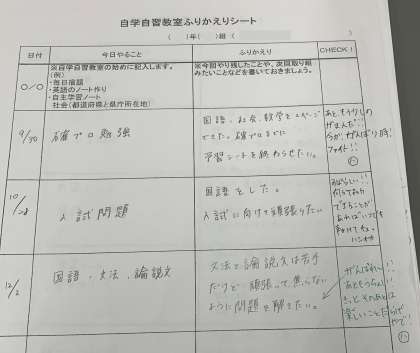 自学自習教室ふりかえりシート
(　)年(　)組(　)
日付
今日やること
ふりかえり
CHECK!
○/○
※自学自習教室の始めに記入します。
(例)
・毎日宿題
・英語のノート作り
・自主学習ノート
社会(都道府県と県庁所在地)
※今回やり残したことや、次回取り組
みたいことなどを書いておきましょう。
9/30
確プロ勉強
国語、社会、数学を
できた。確プロまでに
予習シートを終わらせたい。
あと、もう少しの
がんばり時!
ファイト!!
10/28
入試問題
国語をした。
入試に向けて頑張りたい
すばらしい!!
できることが
あれば、いつでも
12/2
国語、文法、論説文
文法と論説文は苦手
だけど、頑張って、焦らない
ように問題を解きたい。
がんばれ〜!!
あともう少し!!
きっとそのあとは
楽しいことだらけ
やで!!